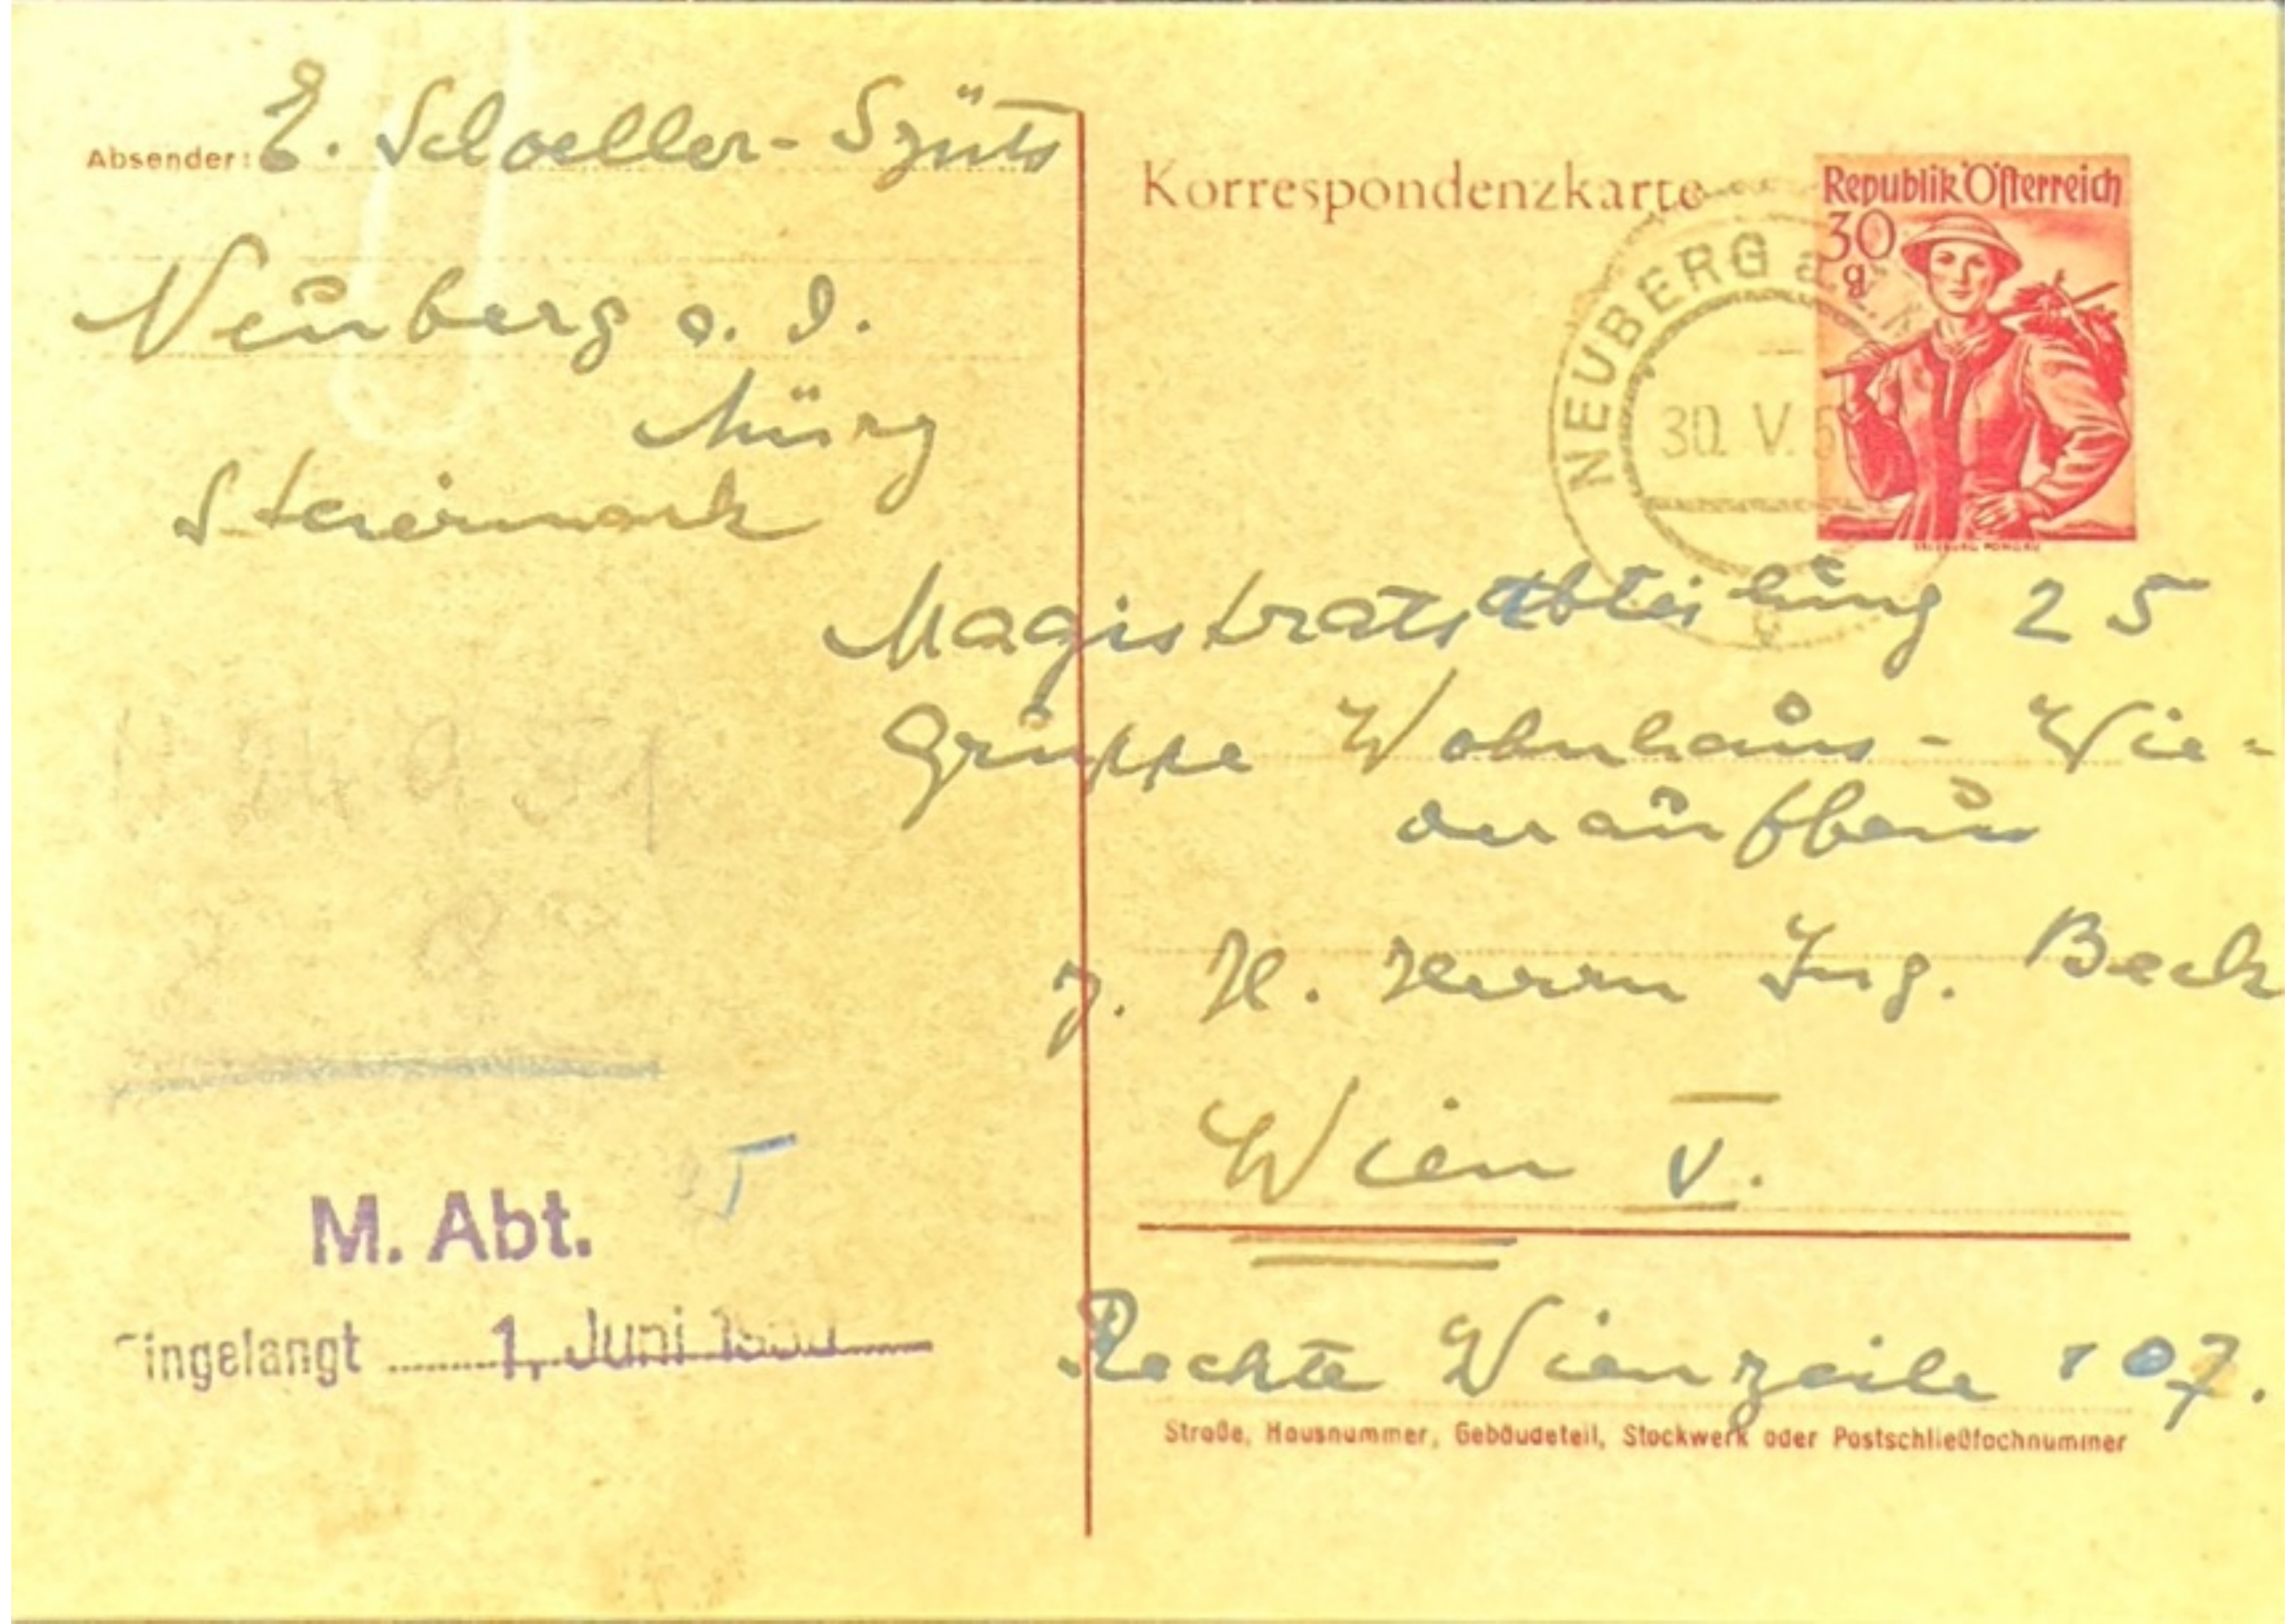 Absender: E. Schoeller-Szüts
Neuberg a. d.
Mürz
Steiermark
Korrespondenzkarte
Republik Österreich
30
g
NEUBERG a.
30. V. 5
Magistratsabteilung 25
Gruppe Wohnhaus - Wie-
deraufbau
z. H. Herrn Ing. Beck
Wien V.
Rechte Wienzeile 107.
Straße, Hausnummer, Gebäudeteil, Stockwerk oder Postschließfachnummer
M. Abt. 25
Eingelangt 1. Juni